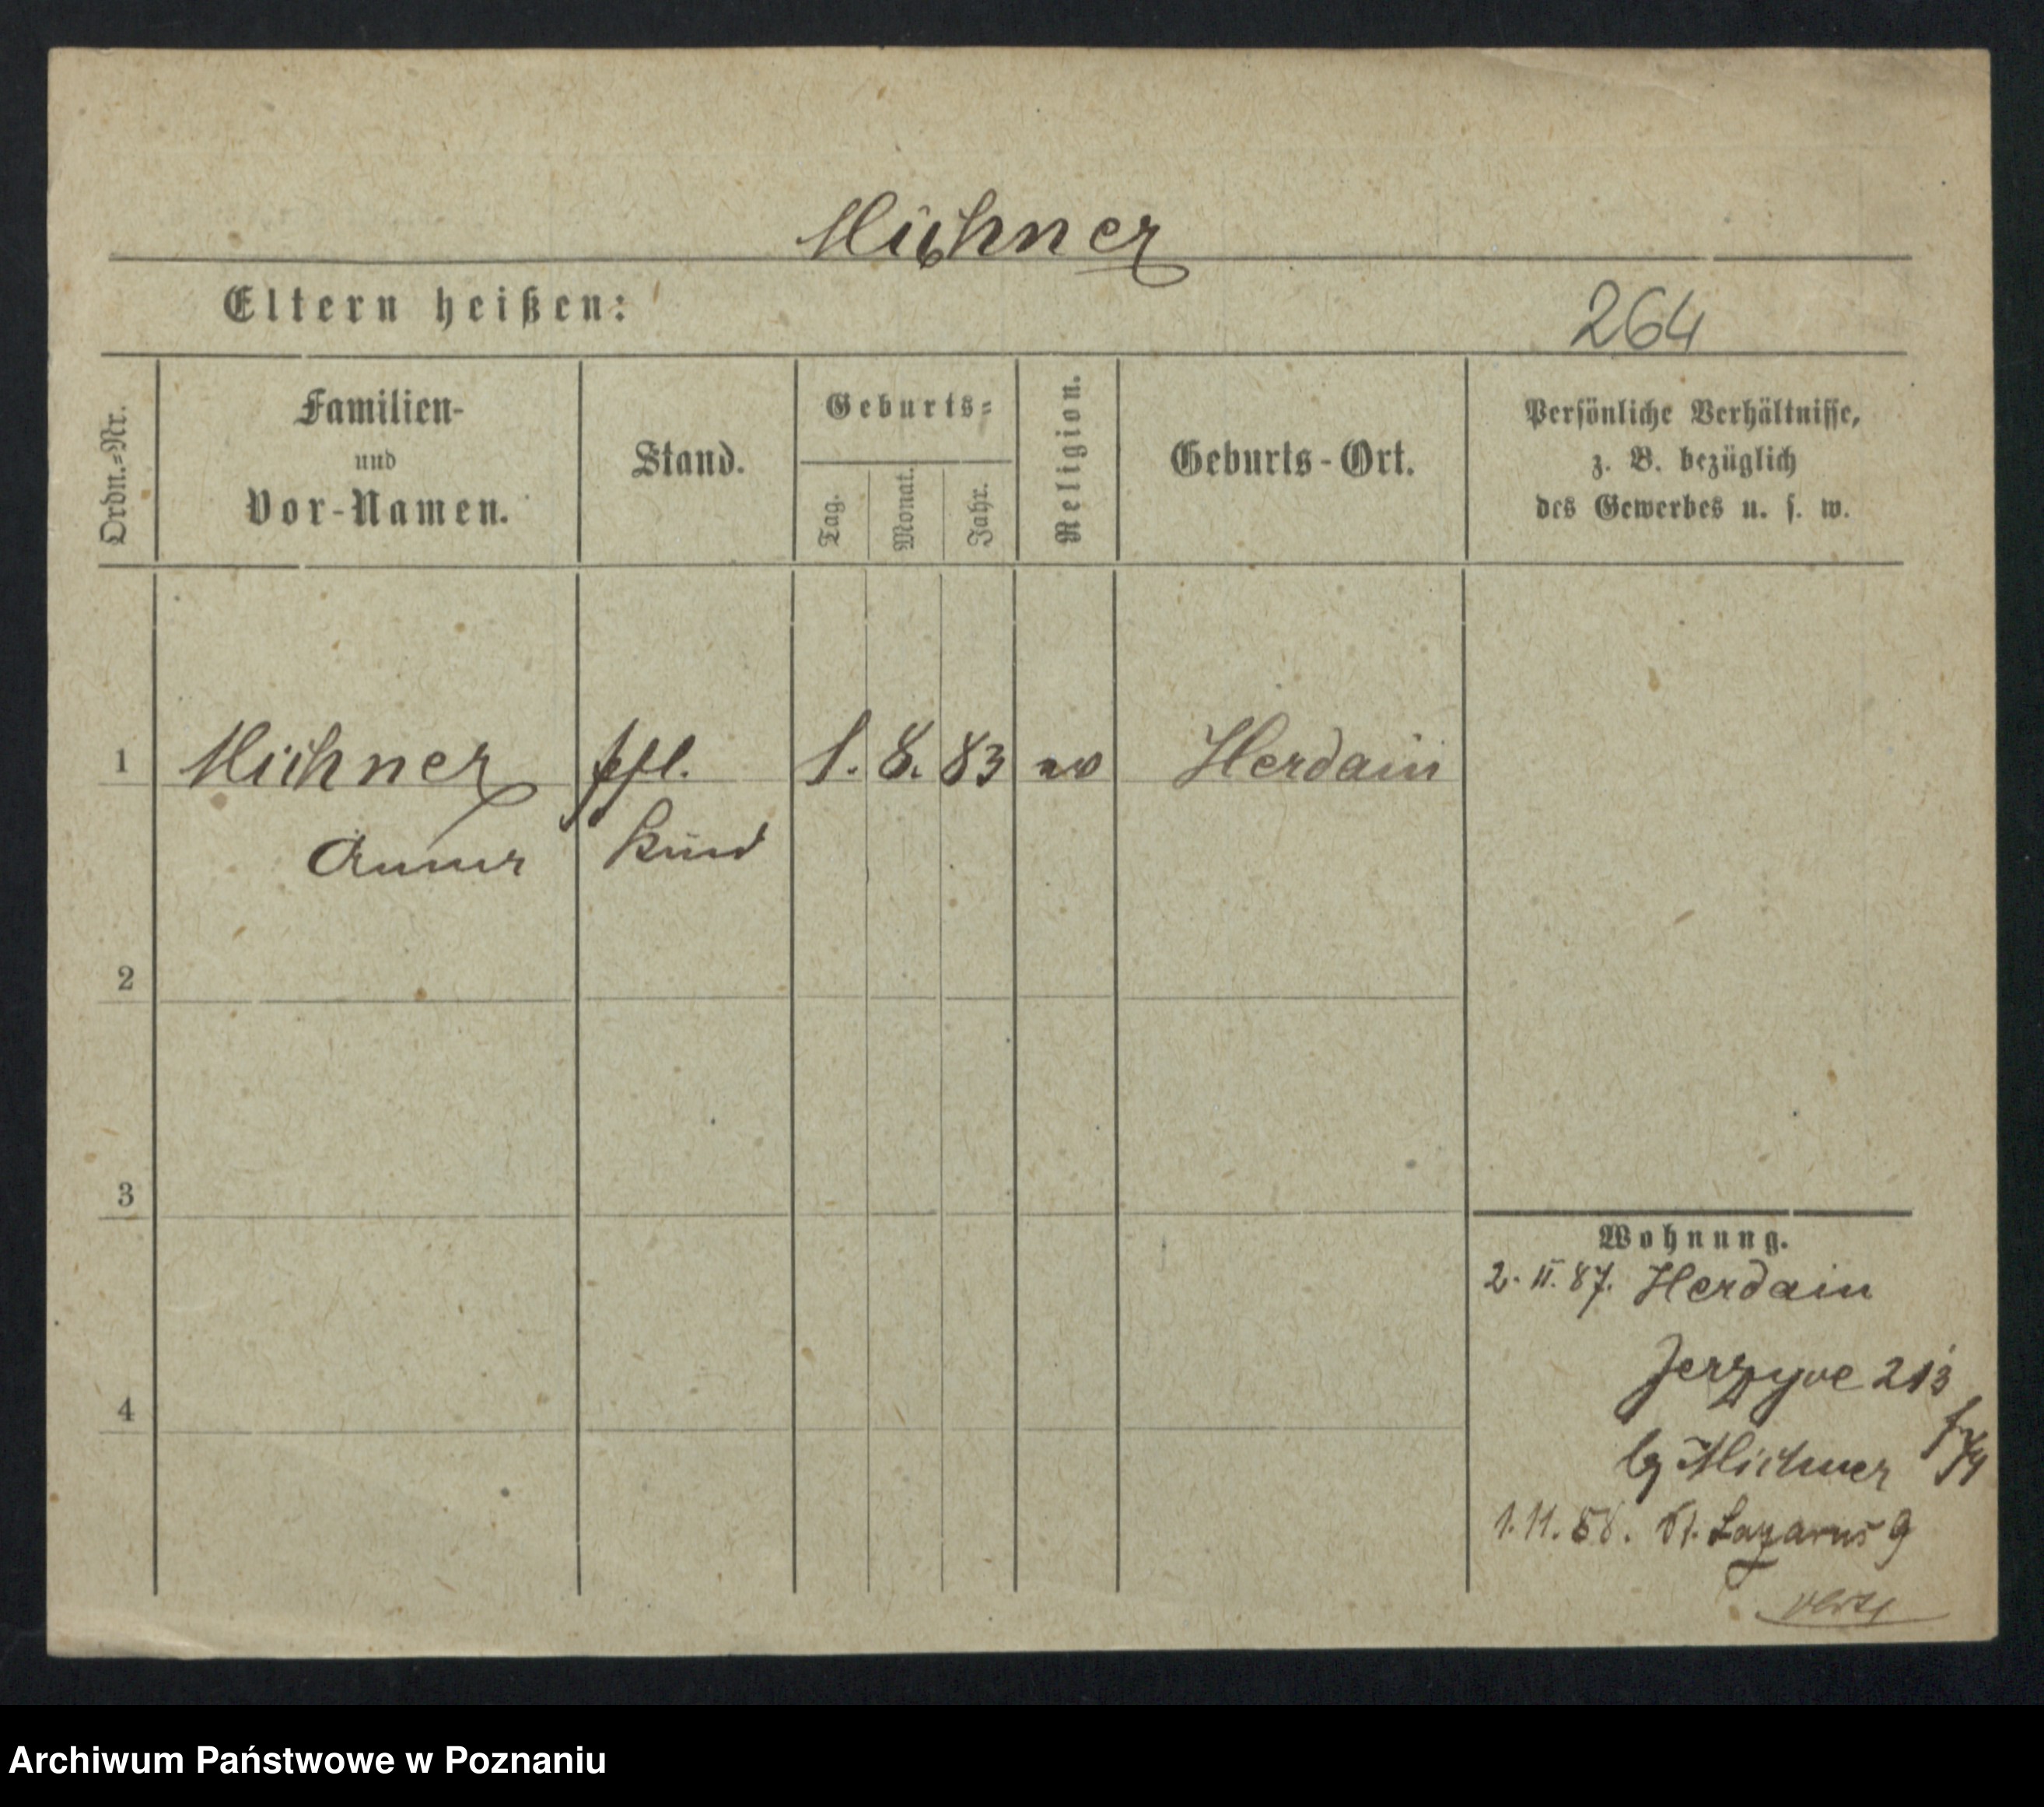 Michner
Eltern heißen:
264
Ordn.=Nr.
Familien-
und
Vor-Namen.
Stand.
Geburts=
Tag.
Monat.
Jahr.
Religion.
Geburts-Ort.
Persönliche Verhältnisse,
z. B. bezüglich
des Gewerbes u. s. w.
1 Michner pfl. 1. 8. 83 ev Herdain
Anna Kind
2
3
4
Wohnung.
2. II. 87. Herdain
Jerzyce 213
by Michner
1. 11. 88. St. Lazarus 9
Archiwum Państwowe w Poznaniu